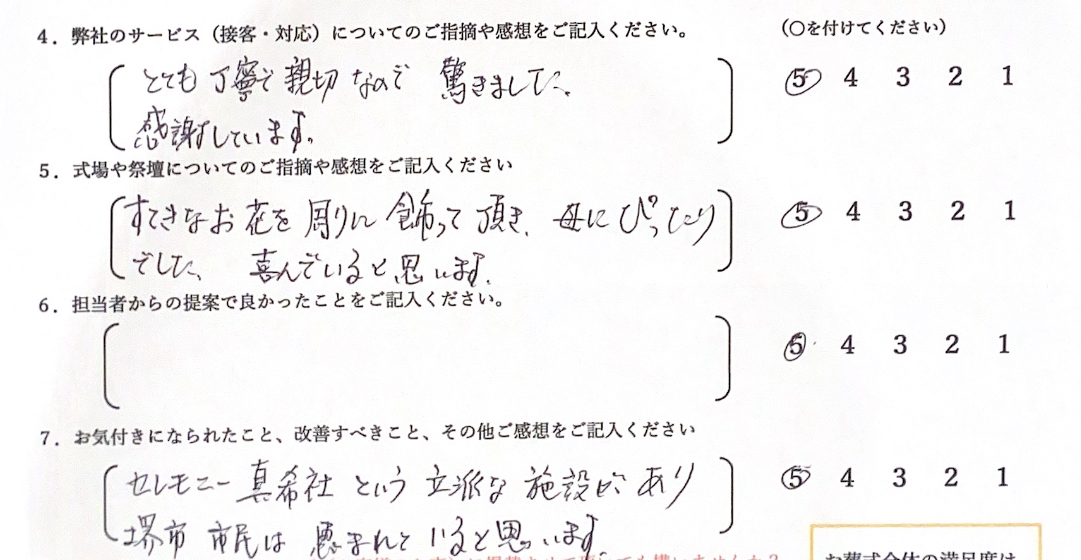 4．弊社のサービス（接客・対応）についてのご指摘や感想をご記入ください。 （〇を付けてください）
とても丁寧で親切なので 驚きました。 5 4 3 2 1
感謝しています。
5．式場や祭壇についてのご指摘や感想をご記入ください
すてきなお花を周りに飾って頂き、母にぴったり 5 4 3 2 1
でした、 喜んでいると思います。
6．担当者からの提案で良かったことをご記入ください。
5 4 3 2 1
7．お気付きになられたこと、改善すべきこと、その他ご感想をご記入ください
セレモニー真希社という立派な施設が あり 5 4 3 2 1
堺市 市民は 恵まれていると思います。
お葬式全体の満足度は